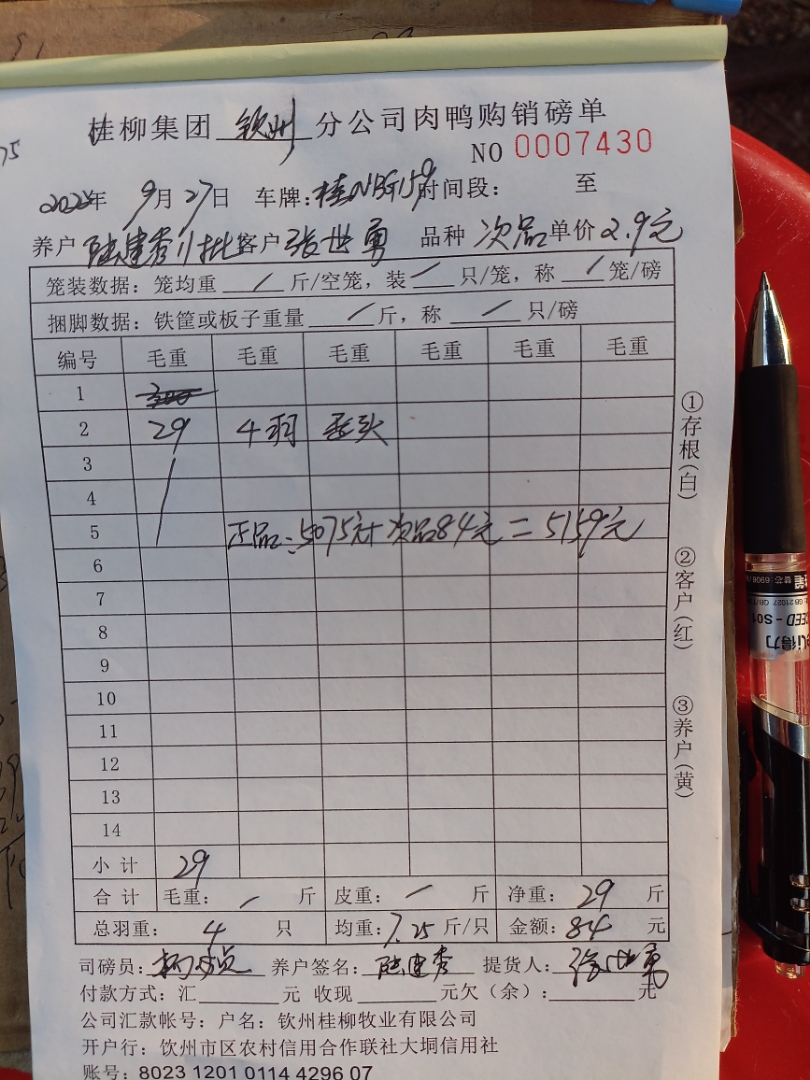 桂柳集团 钦州 分公司肉鸭购销磅单
NO 0007430
2022年 9月27日 车牌:桂NBG159 时间段: 至
养户 陆建秀11批 客户 张世勇 品种 次品 单价 2.9元
笼装数据:笼均重 / 斤/空笼,装 / 只/笼,称 / 笼/磅
捆脚数据:铁筐或板子重量 / 斤,称 / 只/磅
编号 毛重 毛重 毛重 毛重 毛重 毛重
1
2 29 4羽
3
4
5 正品:5075元+次品84元=5159元
6
7
8
9
10
11
12
13
14
小计 29
合计 毛重: / 斤 皮重: / 斤 净重: 29 斤
总羽重: 4 只 均重:7.25斤/只 金额: 84 元
司磅员: 养户签名: 陆建秀 提货人: 张世勇
付款方式:汇 元 收现 元欠(余): 元
公司汇款帐号:户名:钦州桂柳牧业有限公司
开户行:钦州市区农村信用合作联社大垌信用社
账号:8023 1201 0114 4296 07
①存根(白)
②客户(红)
③养户(黄)